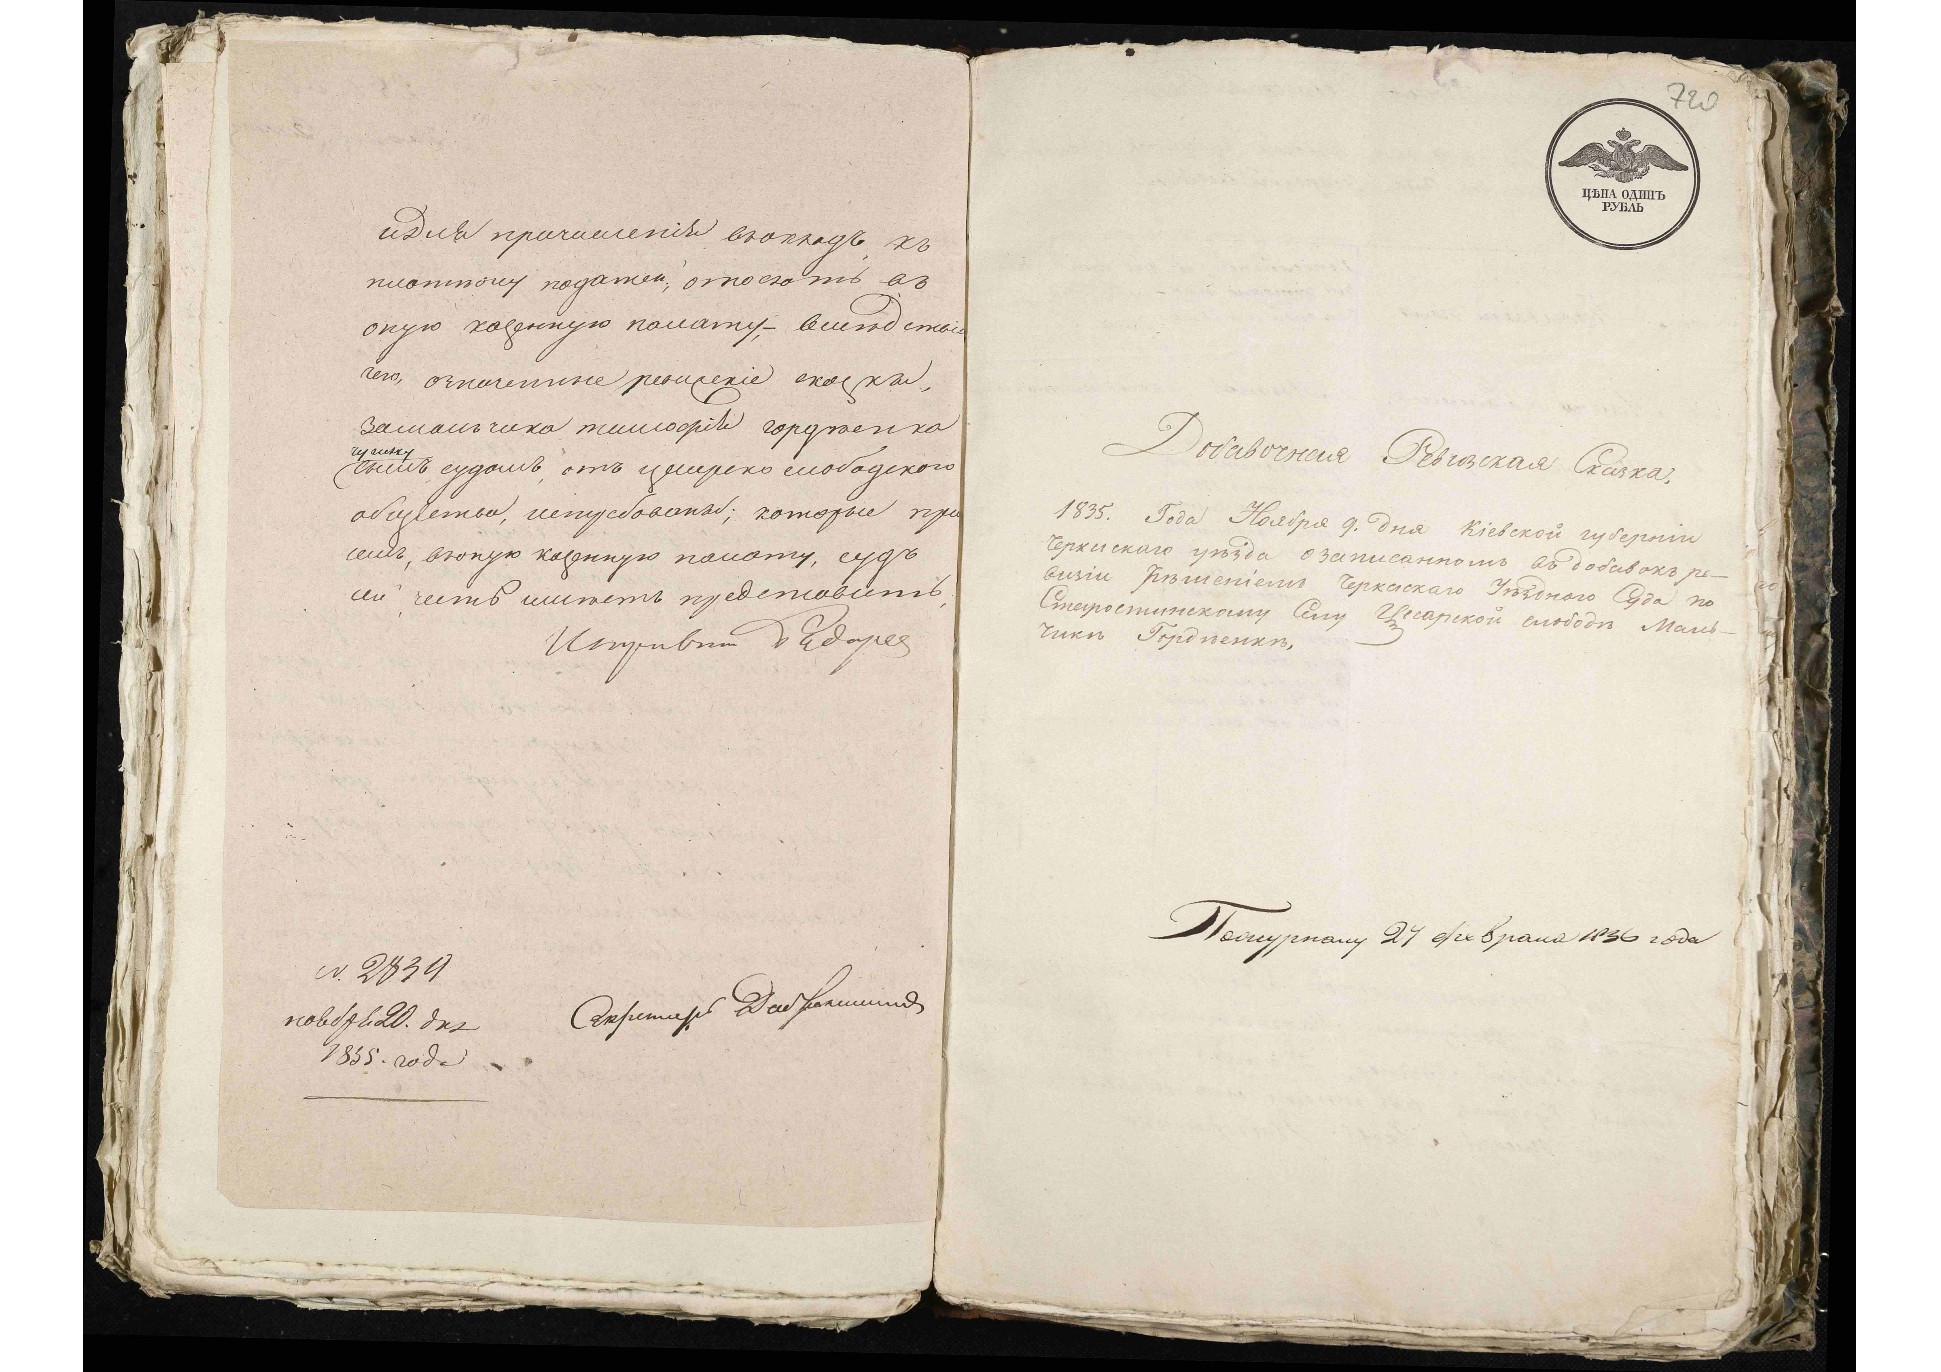 и для причисленія въ окладъ къ
платежу податей, относить въ
оную казенную палату, – вследствіе
чего, означенные ревизскіе сказки,
за мальчика тимофѣя гордѣенка
судомъ, отъ цесарско слободского
общества, истребованы; которые при
семъ, въ оную казенную палату, судъ
сей честь имѣетъ представить.
№ 2839
ноября 20. дня
1835. года
Секретарь
720
ЦѢНА ОДИНЪ
РУБЛЬ
Добавочная Ревизская Сказка,
1835. Года Ноября 9. дня Кіевской губерніи
Черкаскаго уѣзда о записанномъ въ добавокъ ре–
визіи Рѣшеніемъ Черкаскаго Уѣзднаго Суда по
Старостинскому Селу Цесарской слободѣ Маль–
чикѣ Гордѣенкѣ.
По журналу 27 февраля 1836 года